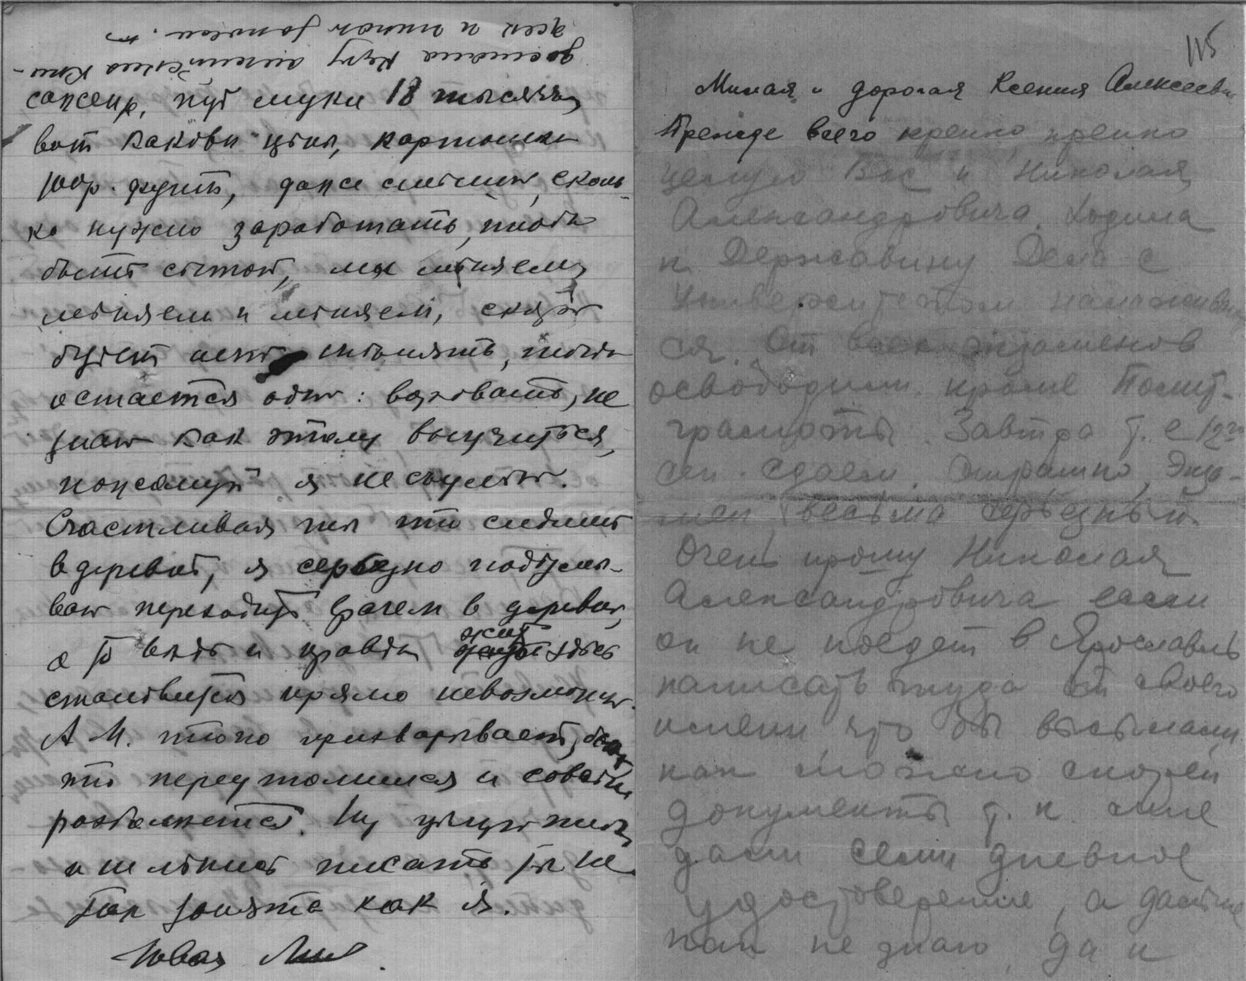 сажень, пуд муки 18 тысяч,
вот каковы цены, картошка
фунт, даже слышим, сколь-
ко нужно заработать, чтобы
быть сытой, мы меняем,
меняем и меняем, скоро
будет нечего менять, тогда
остается одно: воровать, не
знаю как этому выучиться,
пожалуй я не сумею.
Счастливая ты что сидишь
в деревне, я серьезно подумы-
ваю переходить врачем в деревню,
а то ведь и правда жить здесь
становится прямо невозможно.
А М. плохо прихварывает,
что переутомился и совсем
разболеется. Ну целую тебя
и не ленись писать ты не
так занята как я.
Твоя
115
Милая и дорогая Ксения Алексеевна
Прежде всего крепко, крепко
целую Вас и Николая
Александровича. Ходила
к Державину Дело с
Университетом налажива-
ся. От всех экзаменов
освободили кроме Полит-
грамоты. Завтра т. е 12го
сен. сдаем. Страшно, Экза-
мен весьма серьезный.
Очень прошу Николая
Александровича если
он не поедет в Ярославль
написать туда от своего
имени, что бы высылали,
как можно скорей
документы т. к. мне
дали семи дневное
удостоверение, а дальше
как не знаю, да и